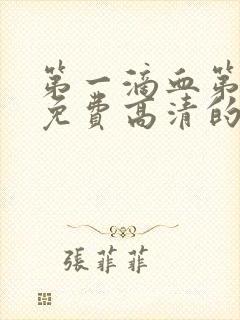 第一滴血第
免费高清的
張菲菲